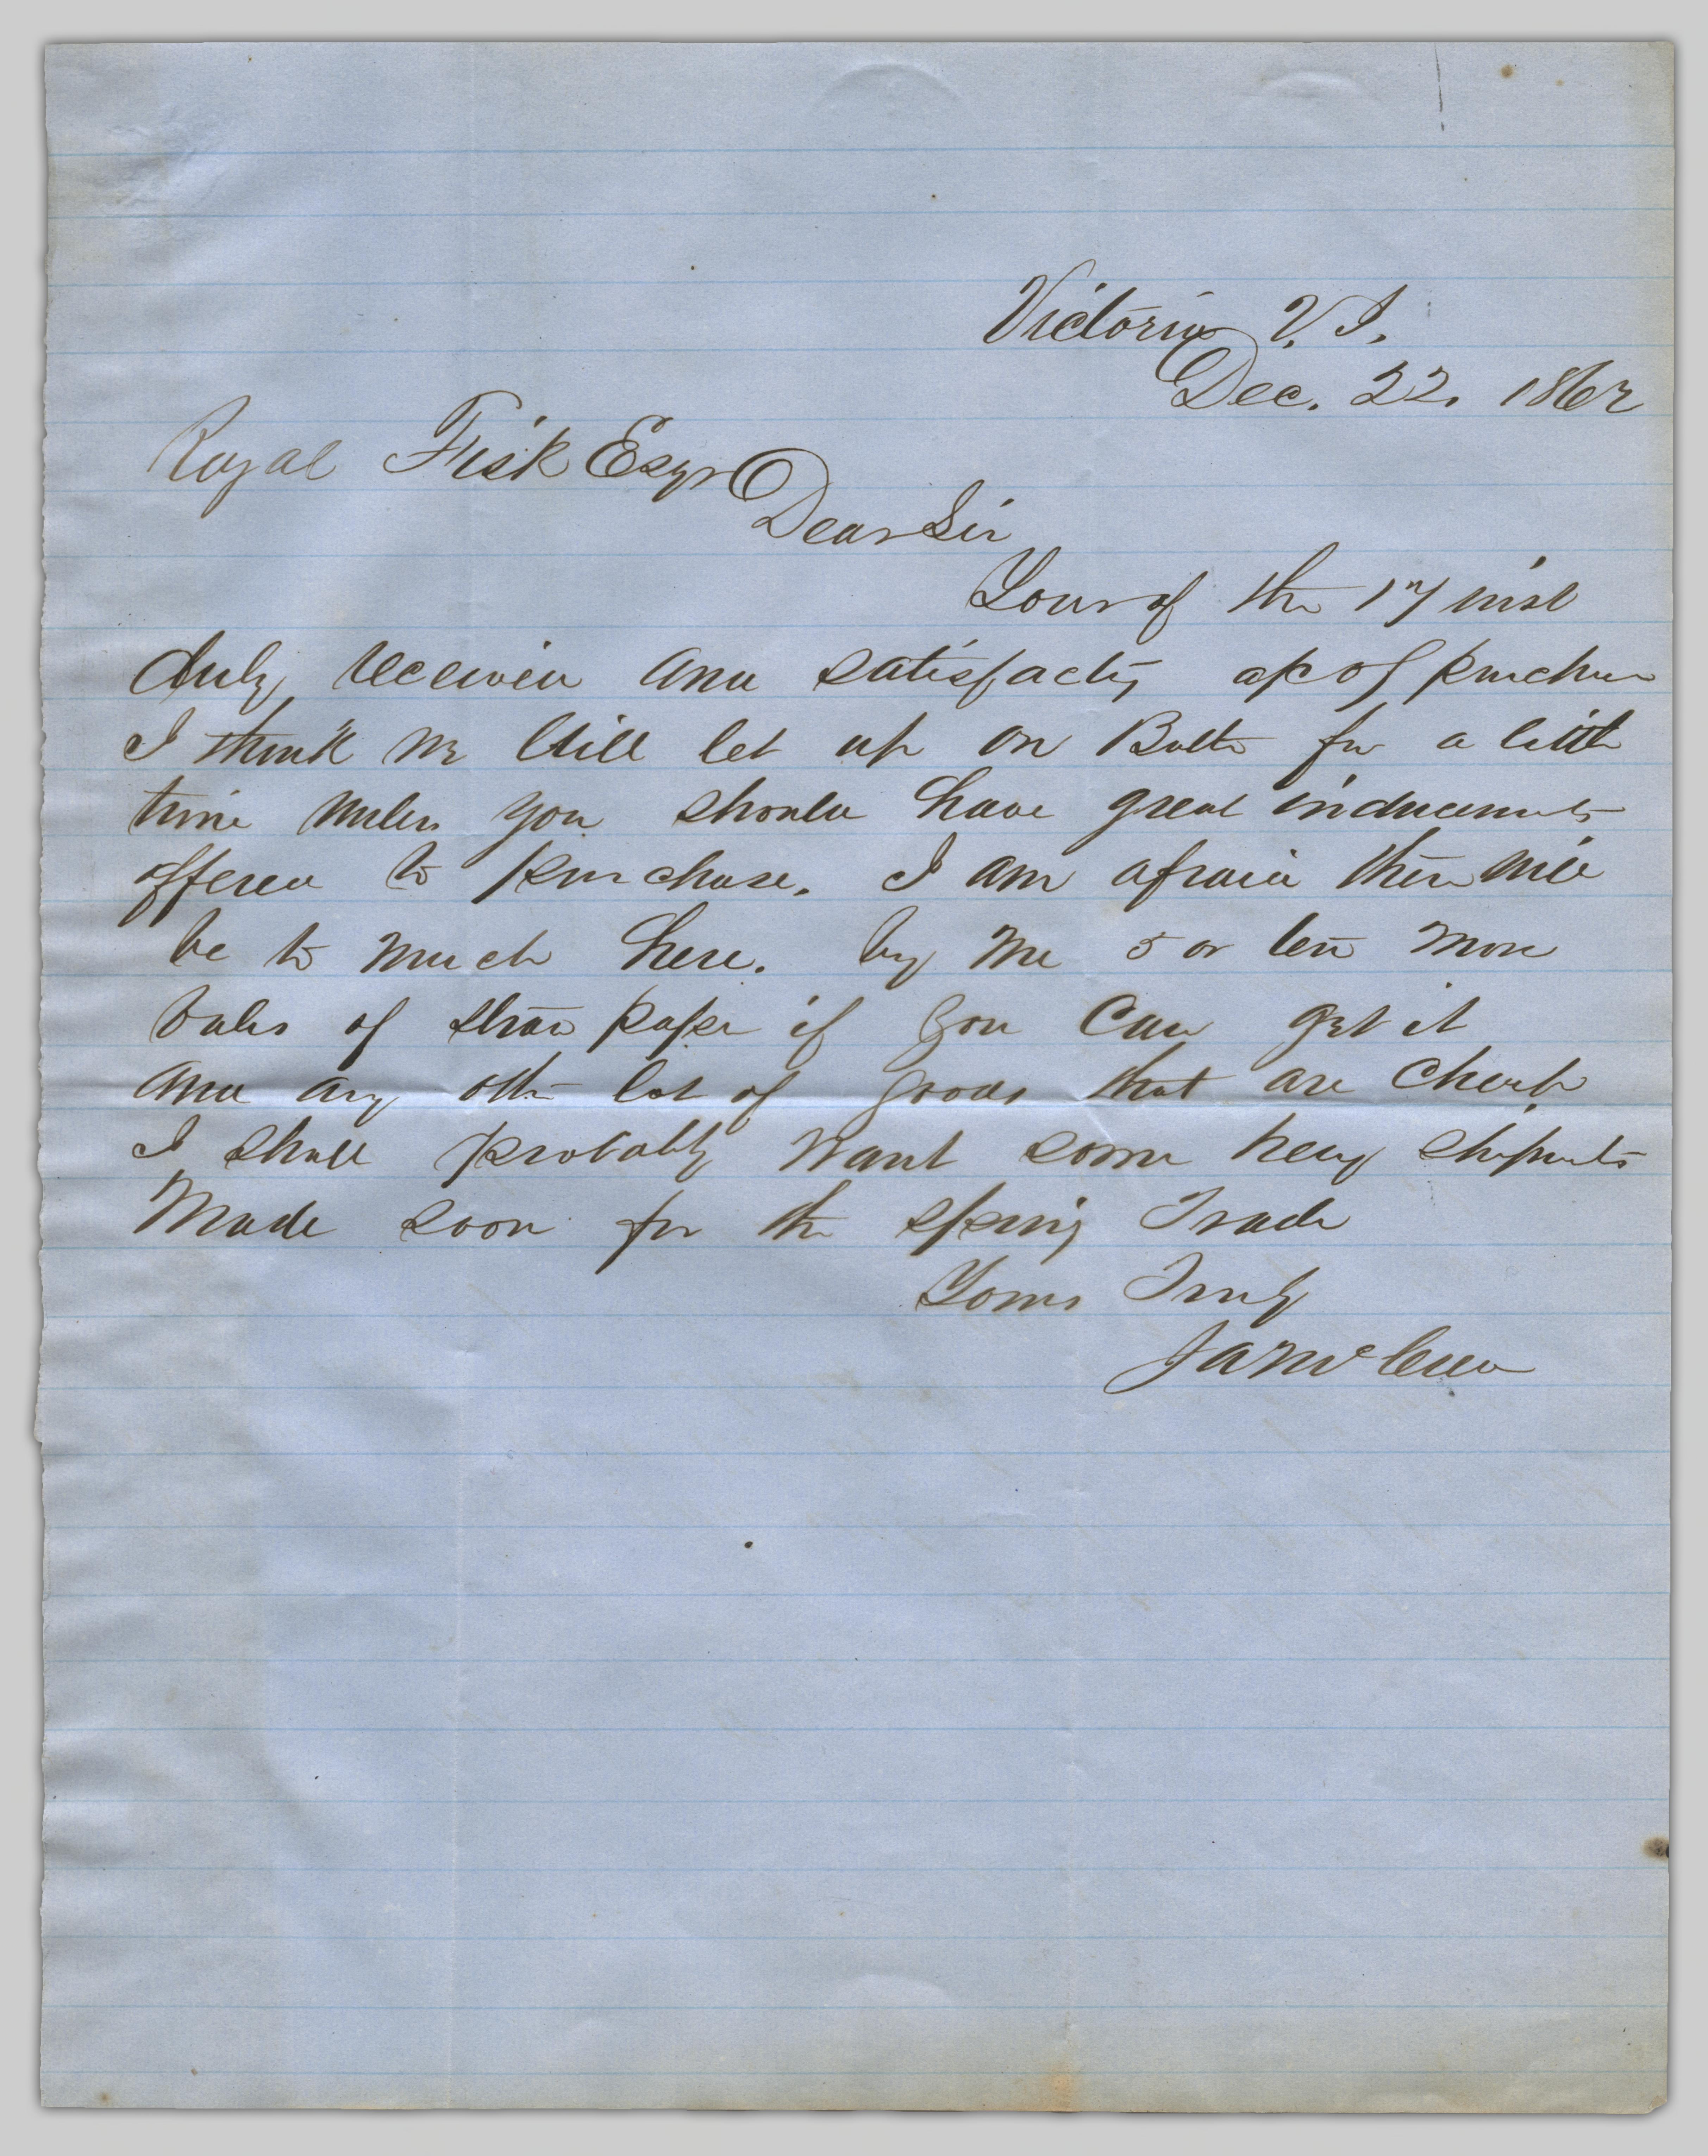 Victoria V. I.
Dec. 22. 1862
Royal Fisk Esqr
Dear Sir
Your of the 17 inst
duly received and satisfacty of purchase
I think we will let up on Butter for a little
time unless you should have great inducements
offered to purchase. I am afraid there will
be to much here. by me 5 or ten more
bales of straw paper if you can get it
and any other lot of goods that are cheap
I shall probably want some heavy shipments
made soon for the spring Trade
Yours Truly